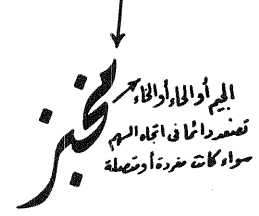 مخبز
الجيم أو الحاء أو الخاء
تصعد دائما فى اتجاه السهم
سواء كانت مفردة أو متصلة